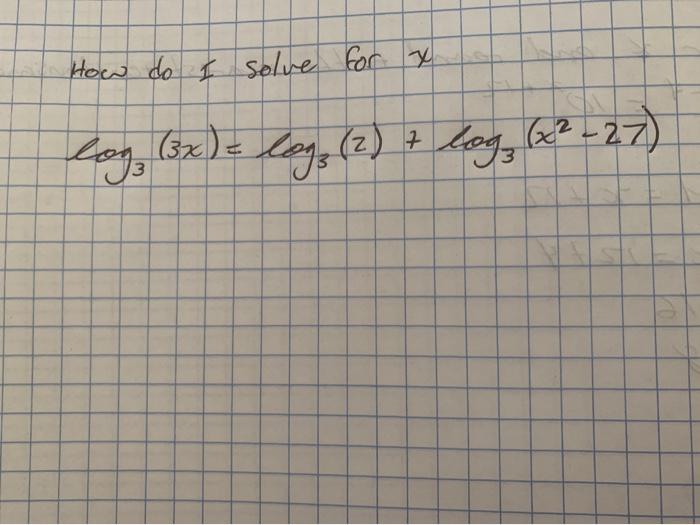 How do I solve for x
log₃ (3x) = log₃ (2) + log₃ (x² - 27)